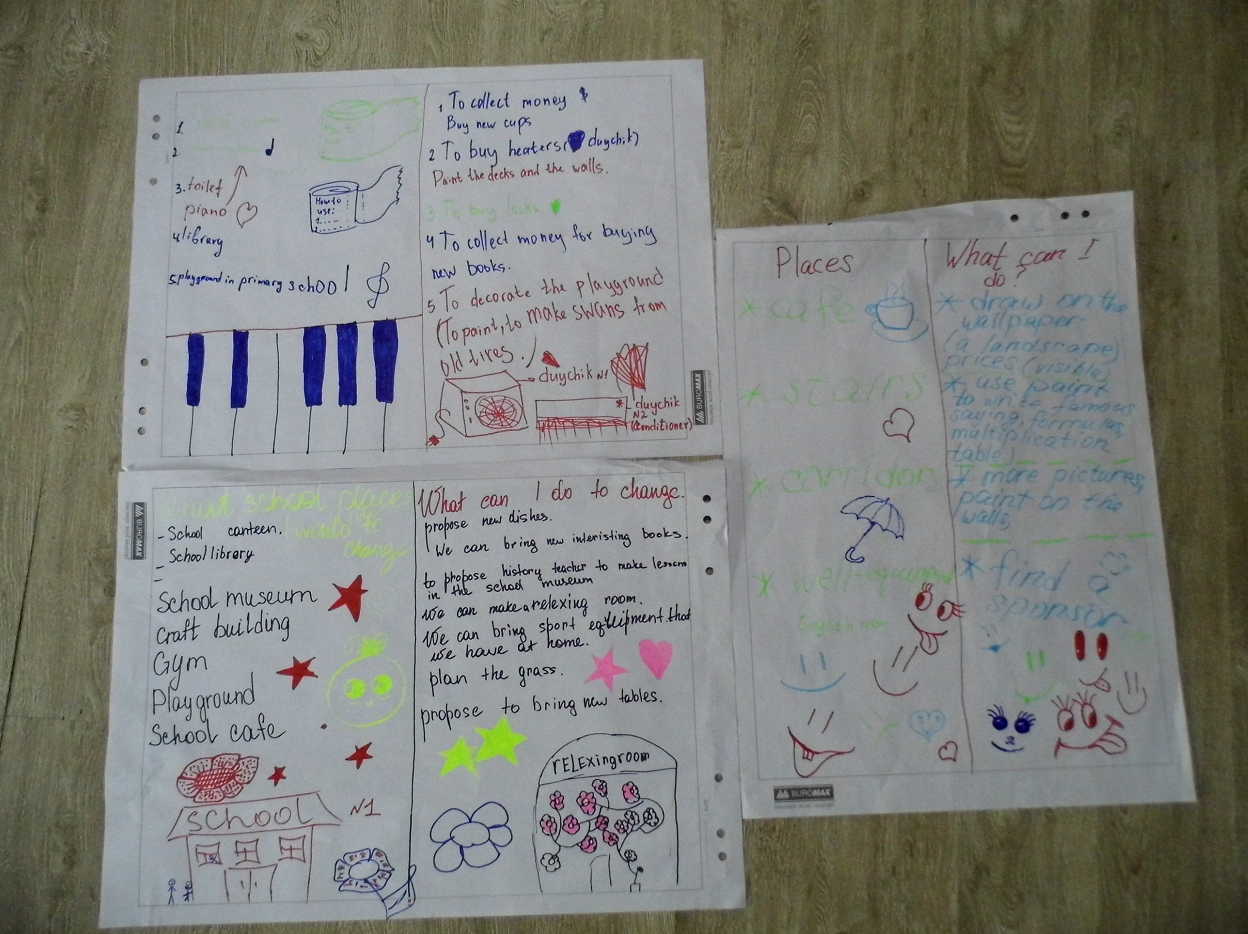 1.
2
3. toilet
piano
4 library
5. playground in primary school
How to
use:
1.
1. To collect money
Buy new cups
2 To buy heaters ( duychik)
Paint the decks and the walls.
3. To buy locks
4 To collect money for buying
new books.
5 To decorate the playground
(To paint, to make swans from
old tires.
duychik N1
duychik
N2
(conditioner)
BUROMAX
school place
wants to
change
- School canteen.
- School library
-
School museum
Craft building
Gym
Playground
School cafe
SCHOOL
N1
What can I do to change.
propose new dishes.
We can bring new interisting books.
to propose history teacher to make lesson
in the school museum
We can make a relexing room.
We can bring sport that
we have at home.
plan the grass.
propose to bring new tables.
rELExingroom
BUROMAX
Places
* cafe
* stairs
* corridor
*
What can I
do?
* draw on the
wallpaper
(a landscape)
prices (visible)
* use paint
to write famous
saying, formulas,
multiplication
table)
* more pictures,
paint on the
walls
* find a
sponsor
2
BUROMAX